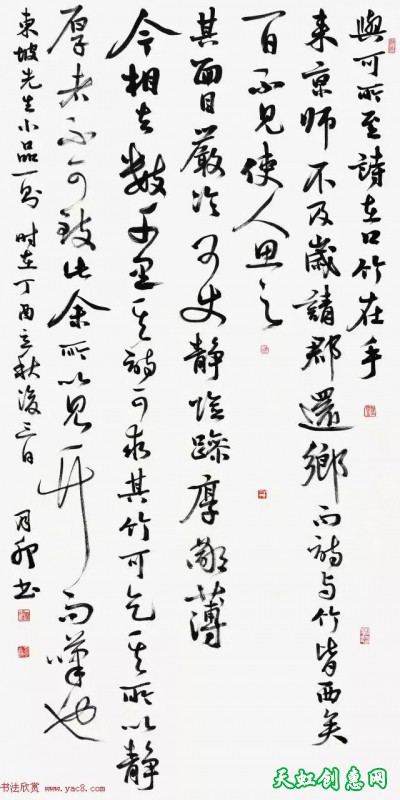 與可所至詩在口竹在手
来京師不及歲請郡還鄉而詩与竹皆西矣
一日不見使人思之
其面目嚴冷可使静險躁厚鄙薄
今相去數千里其詩可求其竹可乞其所以静
厚者不可致此余所以見竹而嘆也
東坡先生小品一則 時在丁酉立秋後三日 月卯书
书法欣赏 www.yac8.com
天虹创惠网